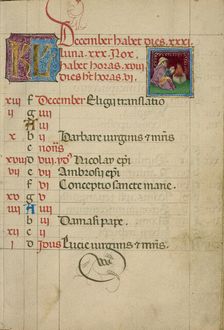 KL
December habet dies. xxxi.
luna. xxx. Nox.
habet horas. xviii.
dies ht horas. vi.
xiii f December Eligii translatio
ii g
x b Barbare virginis et mris
c nonis
xviii d viii. Nicolay epi
vii e Ambrosii epi
f Conceptio sancte marie.
xv g
iiii A
b Damasi pape.
xii c
i d Idus Lucie virginis et mris